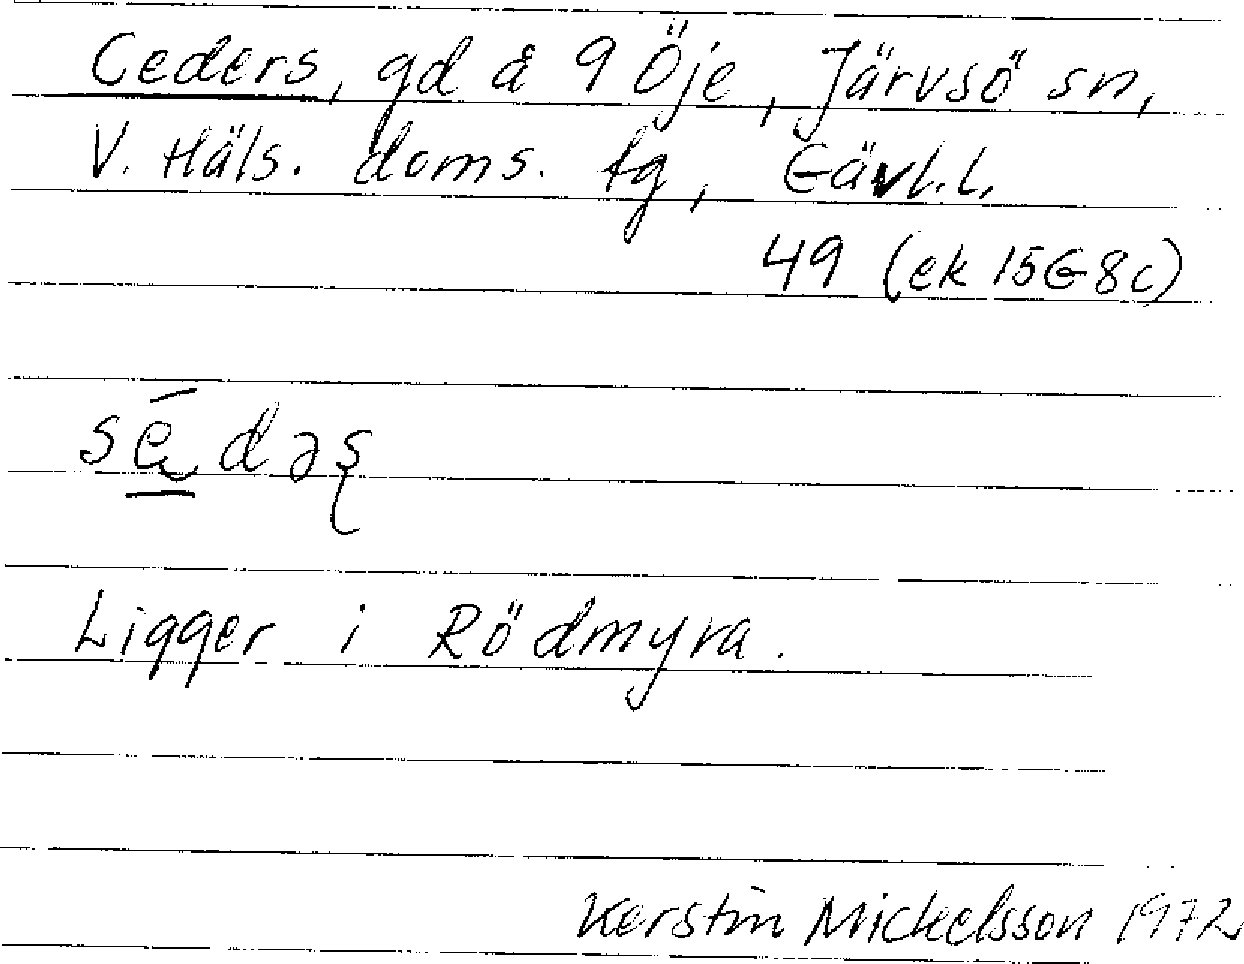 Ceders, gd å 9 Öje, Järvsö sn,
V. Häls. doms. tg, Gävl. l.
49 (ek 15G8c)
Ligger i Rödmyra.
Kerstin Mickelsson 1972